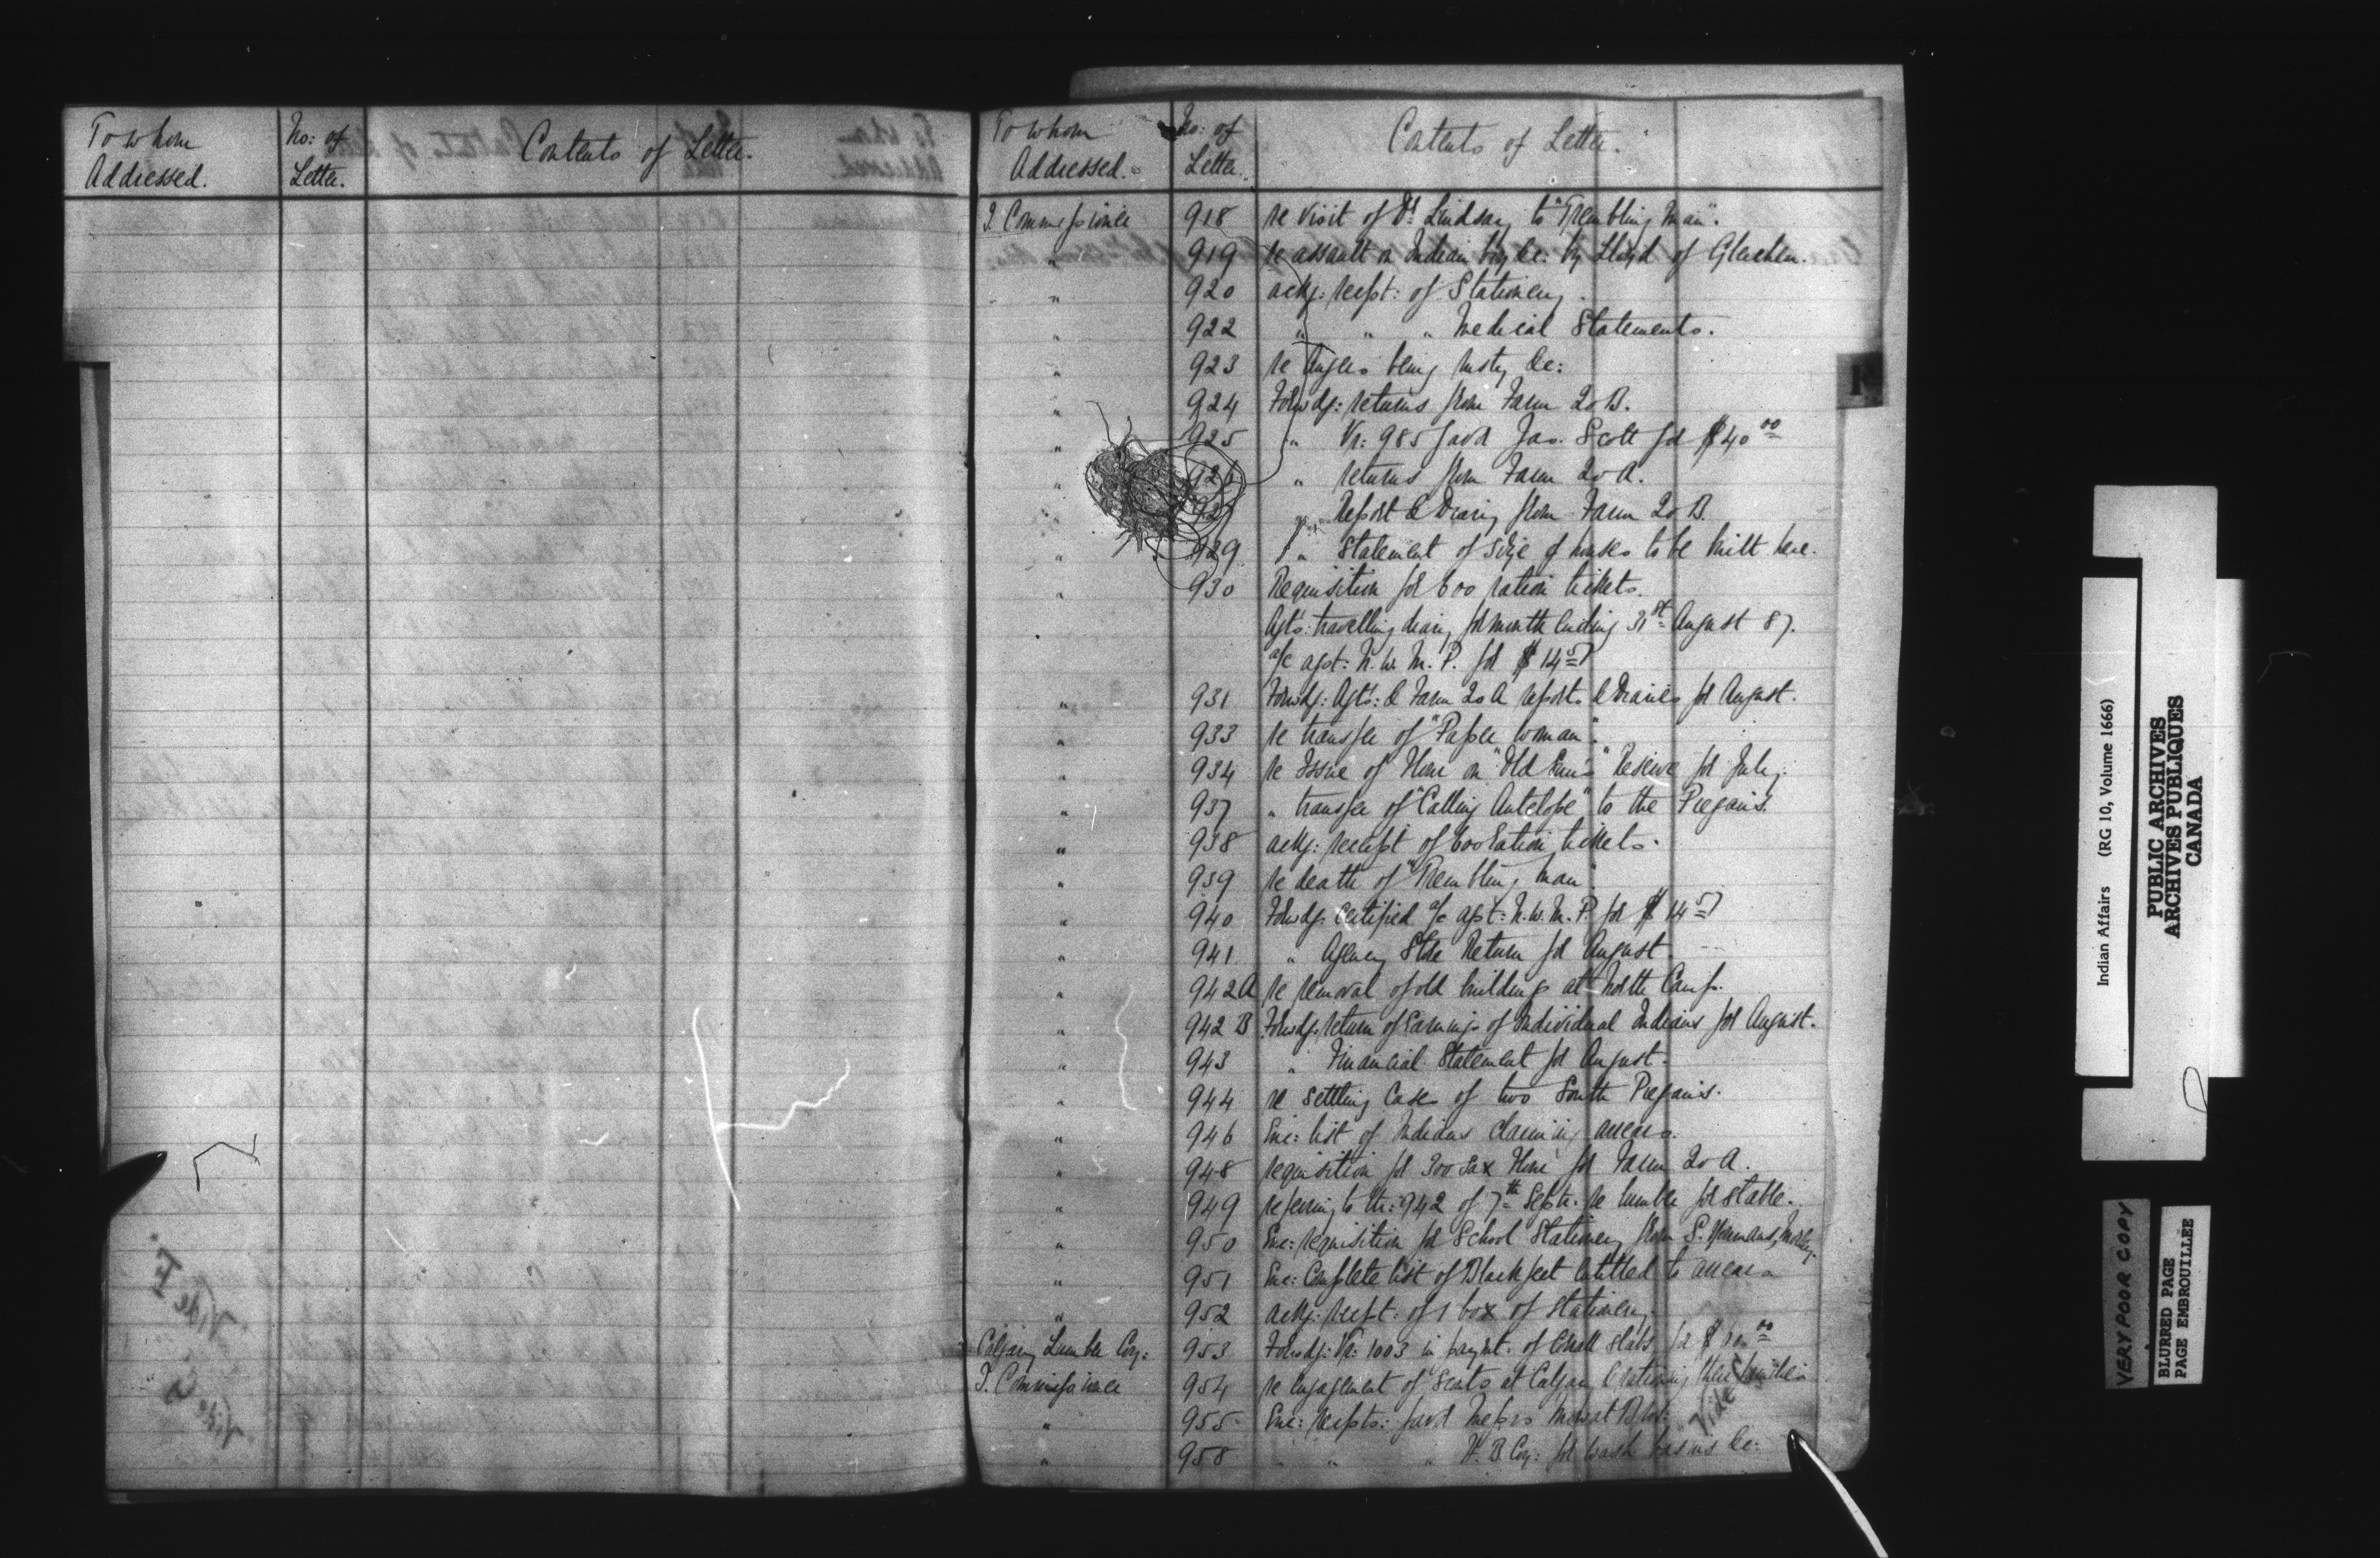 To whom
Addressed.
No: of
Letter.
Contents of Letter.
To whom
Addressed.
No: of
Letter.
Contents of Letter.
I. Commissioner 918 re visit of Dr. Lindsay to "Trembling Man".
" 919 re assault on Indian boy &c: by Lloyd of Gleichen.
" 920 ackg: recpt: of Stationery.
" 922 " " " Medical Statements.
" 923 re Augers being rusty &c:
" 924 Forwdg: returns from Farm 20 B.
" 925 " Vr: 985 favr Jas. Scott for $40 00
" 926 " returns from Farm 20 A.
" " Report & Diary from Farm 20 B.
" 929 " Statement of size of houses to be built here.
" 930 Requisition for 600 ration tickets.
Agts: travelling diary for month ending 31st August 87.
a/c agst: N.W.M.P. for $14 57
" 931 Forwdg: Agts: & Farm 20 A reports & Diaries for August.
" 933 re transfer of "Paper Woman".
" 934 re Issue of Flour on "Old Sun's" Reserve for July.
" 937 " transfer of "Calling Antelope" to the Piegans.
" 938 ackg: receipt of 600 Ration tickets.
" 939 re death of "Trembling Man".
" 940 Forwdg: Certified a/c agst: N.W.M.P. for $14 57
" 941 " Agency Store Return for August.
" 942A re removal of old buildings at North Camp.
" 942 B Forwdg: return of Earnings of Individual Indians for August.
" 943 " Financial Statement for August.
" 944 re settling Case of two South Piegans.
" 946 Enc: list of Indians claiming arrears.
" 948 requisition for 300 Sax Flour for Farm 20 A.
" 949 referring to 942 of 7th Septr. re lumber for stable.
" 950 Enc: requisition for School Stationery from S. Youmans, Morley.
" 951 Enc: Complete list of Blackfeet entitled to arrears
" 952 ackg: recpt: of 1 box of stationery.
Calgary Lumber Coy: 953 Forwdg: Vr: 1003 in paymt. of Small slabs for $ 00
I. Commissioner 954 re engagement of Scouts at Calgary & rationing their families
" 955 Enc: recpts: favr Messrs Mowat Bros:
Vide
" 958 " " " H. B. Coy: for wash basins &c:
Vide E
Vide G
Indian Affairs (RG 10, Volume 1666)
PUBLIC ARCHIVES
ARCHIVES PUBLIQUES
CANADA
VERY POOR COPY
BLURRED PAGE
PAGE EMBROUILLEE